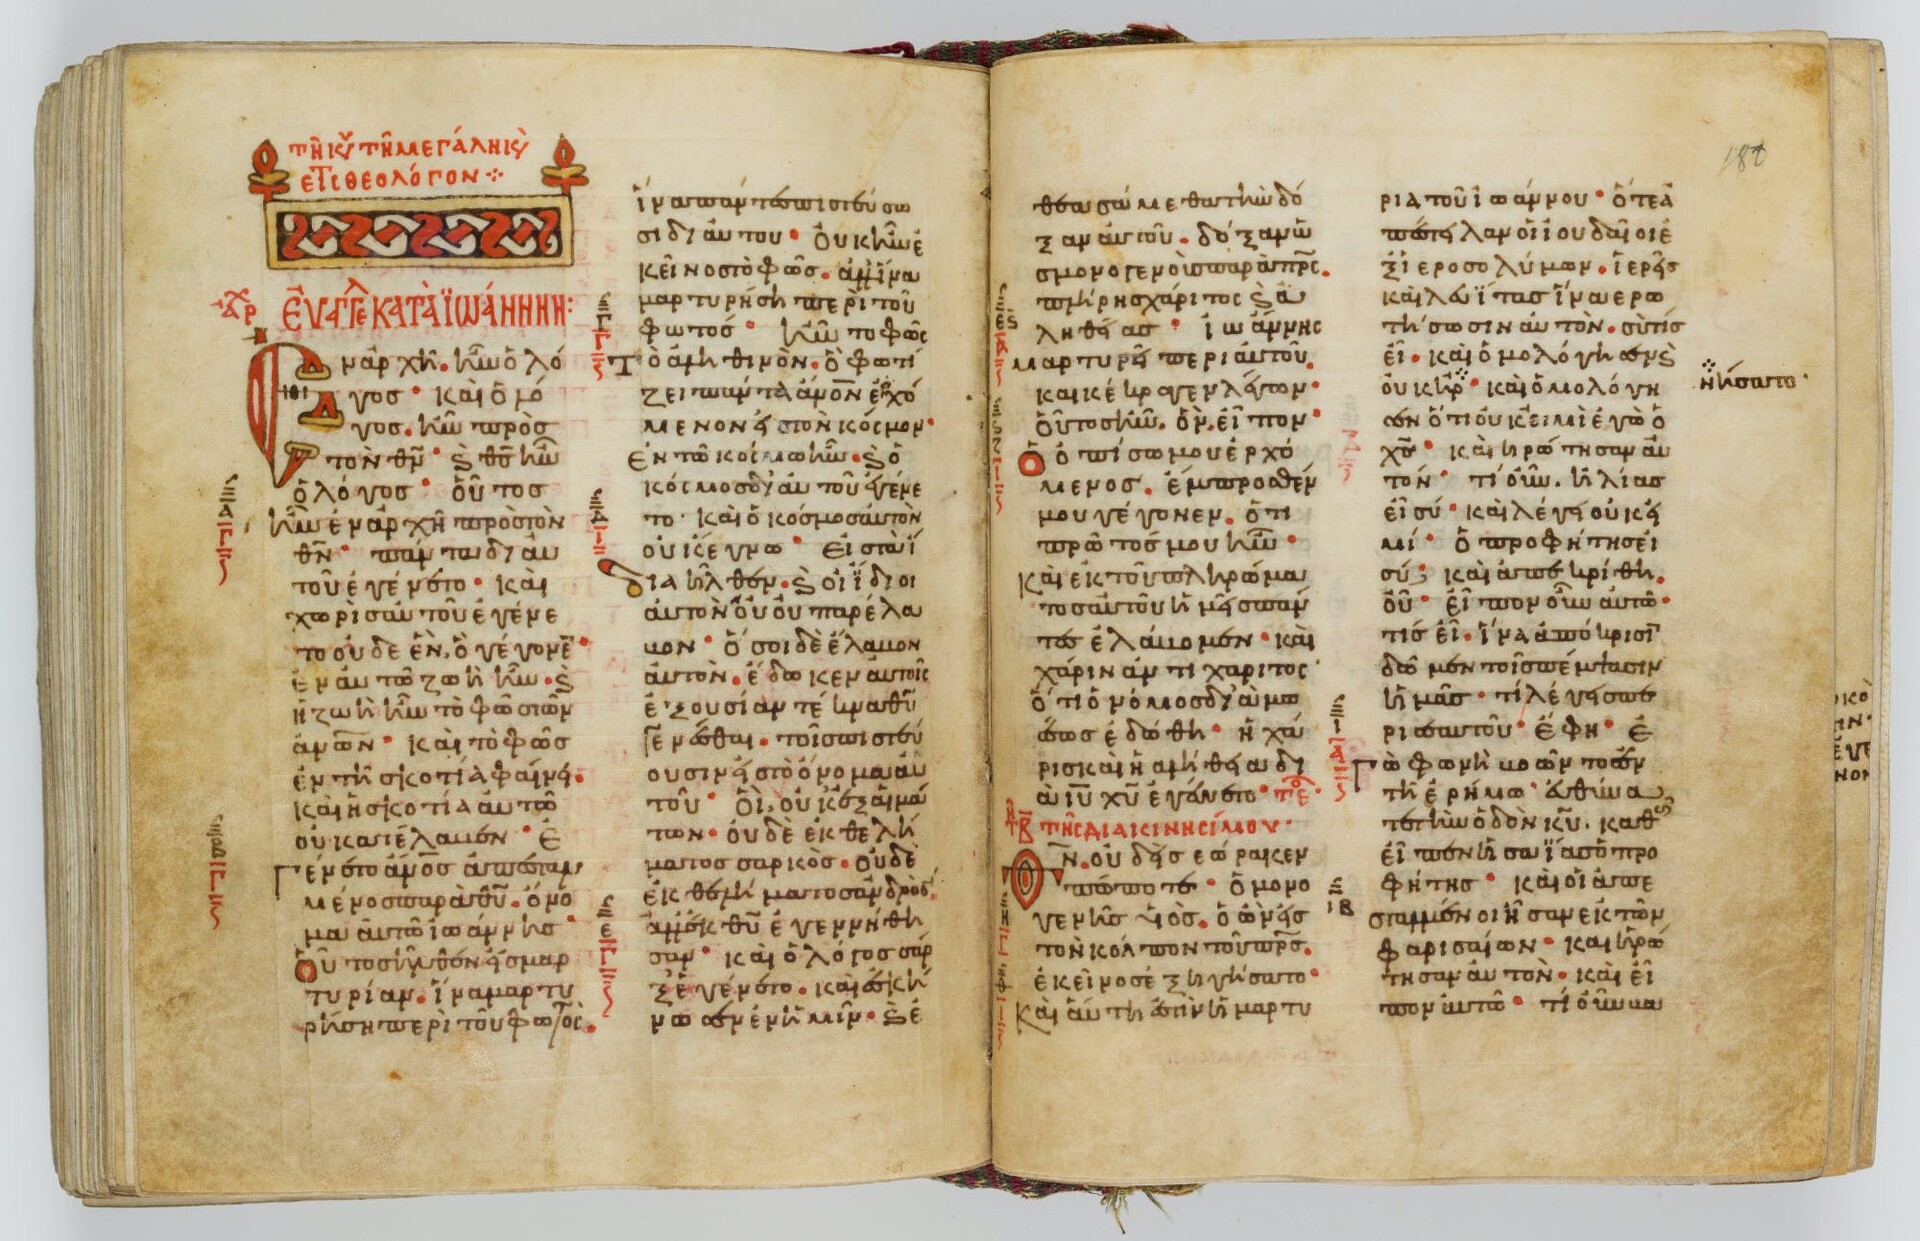 τῆ κυ τῆ μεγάλη κυ
ετι θεολόγον
ἐυαγγε κατὰ ϊωάννην:
ἀρχ
Ἐν ἀρχῆ. ἦν ὁ λό
γος · καὶ ὁ λό
γος. ἦν πρὸς
τὸν θν · ϗ θς ἦν
ὁ λόγος · οὗτος
ἦν ἐν ἀρχῆ πρὸς τὸν
θν · πάντα δι ἀυ
τοῦ ἐγένετο · καὶ
χωρὶς αὐτοῦ ἐγένε
το οὐδε ἓν, ὃ γέγονεν ·
ἐν ἀυτῶ ζωὴ ἦν · ϗ
ἡ ζωὴ ἦν τὸ φῶς τῶν
ἀνων · καὶ τὸ φῶς
ἐν τῆ σκοτία φαίνει.
καὶ ἡ σκοτία ἀυτῶ
οὐ κατέλαβεν · Ἐ
γένετο ἄνος ἀπεσταλ
μένος παρὰ θυ. ὄνο
μα ἀυτῶ ϊωάννης
Οὗτος ἦλθεν εἰς μαρ
τυρίαν. ἵνα μαρτυ
ρήση περὶ τοῦ φωτός.
ἵνα πάντες πιστεύσω
σι δι ἀυτου · Οὐκ ἦν ἐ
κεῖνος τὸ φῶς. ἀλλ ἵνα
μαρτυρήση περὶ τοῦ
φωτός · ἦν το φῶς
Τὸ ἀληθινὸν. ὃ φωτί
ζει πάντα ἄνον ἐρχό
μενον εἰς τὸν κόσμον ·
Ἐν τῶ κόσμω ἦν · ϗ ὁ
κόσμος δι ἀυτοῦ ἐγένε
το · καὶ ὁ κόσμος ἀυτὸν
οὐκ ἔγνω · Εἰς τὰ ἴ
δια ἦλθεν · ϗ οἱ ἴδιοι
ἀυτὸν οὐ παρέλα
βον · ὅσοι δὲ ἔλαβον
ἀυτὸν. ἔδωκεν ἀυτοῖς
ἐξουσίαν τέκνα θυ
γενέσθαι. τοῖς πιστεύ
ουσιν εἰς τὸ ὄνομα ἀυ
τοῦ · Οἳ, οὐκ ἐξ αἱμά
των · οὐδὲ ἐκ θελή
ματος σαρκὸς. οὐδὲ
ἐκ θελήματος ἀνδρὸς.
ἀλλ ἐκ θυ ἐγεννήθη
σαν · καὶ ὁ λόγος σὰρ
ξ ἐγένετο. καὶ ἐσκή
νωσεν ἐν ἡμῖν · ϗ ἐ
θεασάμεθα τὴν δό
ξαν ἀυτοῦ. δόξαν ὡ
ς μονογενοῦς παρὰ πρς.
πλήρης χάριτος ϗ ἀ
ληθείας · ϊωάννης
μαρτυρεῖ περὶ ἀυτοῦ.
και κέκραγεν λέγων ·
οὗτος ἦν. ὃν, εἶπον ·
Ὁ ὀπίσω μου ἐρχό
μενος. ἔμπροσθέν
μου γέγονεν. ὅτι
πρῶτός μου ἦν ·
Καὶ ἐκ τοῦ πληρώμα
τος ἀυτοῦ ἡμεῖς πάν
τες ἐλάβομεν · καὶ
χάριν ἀντι χάριτος ·
ὅτι ὁ νόμος διὰ μω
σέως ἐδόθη · ἡ χά
ρις καὶ ἡ ἀλήθεια δι
ὰ ιυ χυ ἐγένετο · τε
τῆς διακινησίμου ·
Θν. οὐδεὶς ἑώρακεν
πώποτε · ὁ μονο
γενὴς υἱὸς. ὁ ὢν εἰς
τὸν κόλπον τοῦ πρς.
ἐκεῖνος ἐξηγήσατο ·
Καὶ ἀύτη ἐστὶν ἡ μαρτυ
ρια τοῦ ϊωάννου · ὅτε ἀ
πέστειλαν οἱ ϊουδαῖοι ἐ
ξ ϊεροσολύμων. ἱερεῖς
καὶ λευίτας ἵνα ερω
τήσωσιν ἀυτὸν. σὺ τίς
εἶ · καὶ ὁμολόγησεν ϗ
οὐκ ἠρ · καὶ ὁμολόγη
σεν ὅτι οὐκ ειμὶ ἐγὼ ὁ
χς · καὶ ἠρώτησαν ἀυ
τόν · τί οὖν. ἠλίας
εἶ σύ · καὶ λέγει οὐκ εἰ
μί · ὁ προφήτης εἶ
σύ; καὶ ἀπεκρίθη.
οὔ · εἶπον οὖν ἀυτῶ ·
τίς εἶ. ἵνα ἀπόκρισι
δῶμεν τοῖς πέμψασιν
ἡμᾶς · τί λέγεις πε
ρι σεαυτοῦ · ἔφη · ἐ
Γὼ φωνὴ βοῶντος ἐν
τῆ ἐρήμω · ἐυθύνα
τε τὴν ὁδὸν κυ. καθὼς
εἶπεν ἡσαΐας ὁ προ
φήτης · καὶ οἱ ἀπε
σταλμένοι ἦσαν ἐκ τῶν
φαρισαίων · και ἠρώ
τησαν ἀυτὸν · καὶ εἶ
πον ἀυτῶ · τί οὖν βα
ἠρνήσατο ·
180